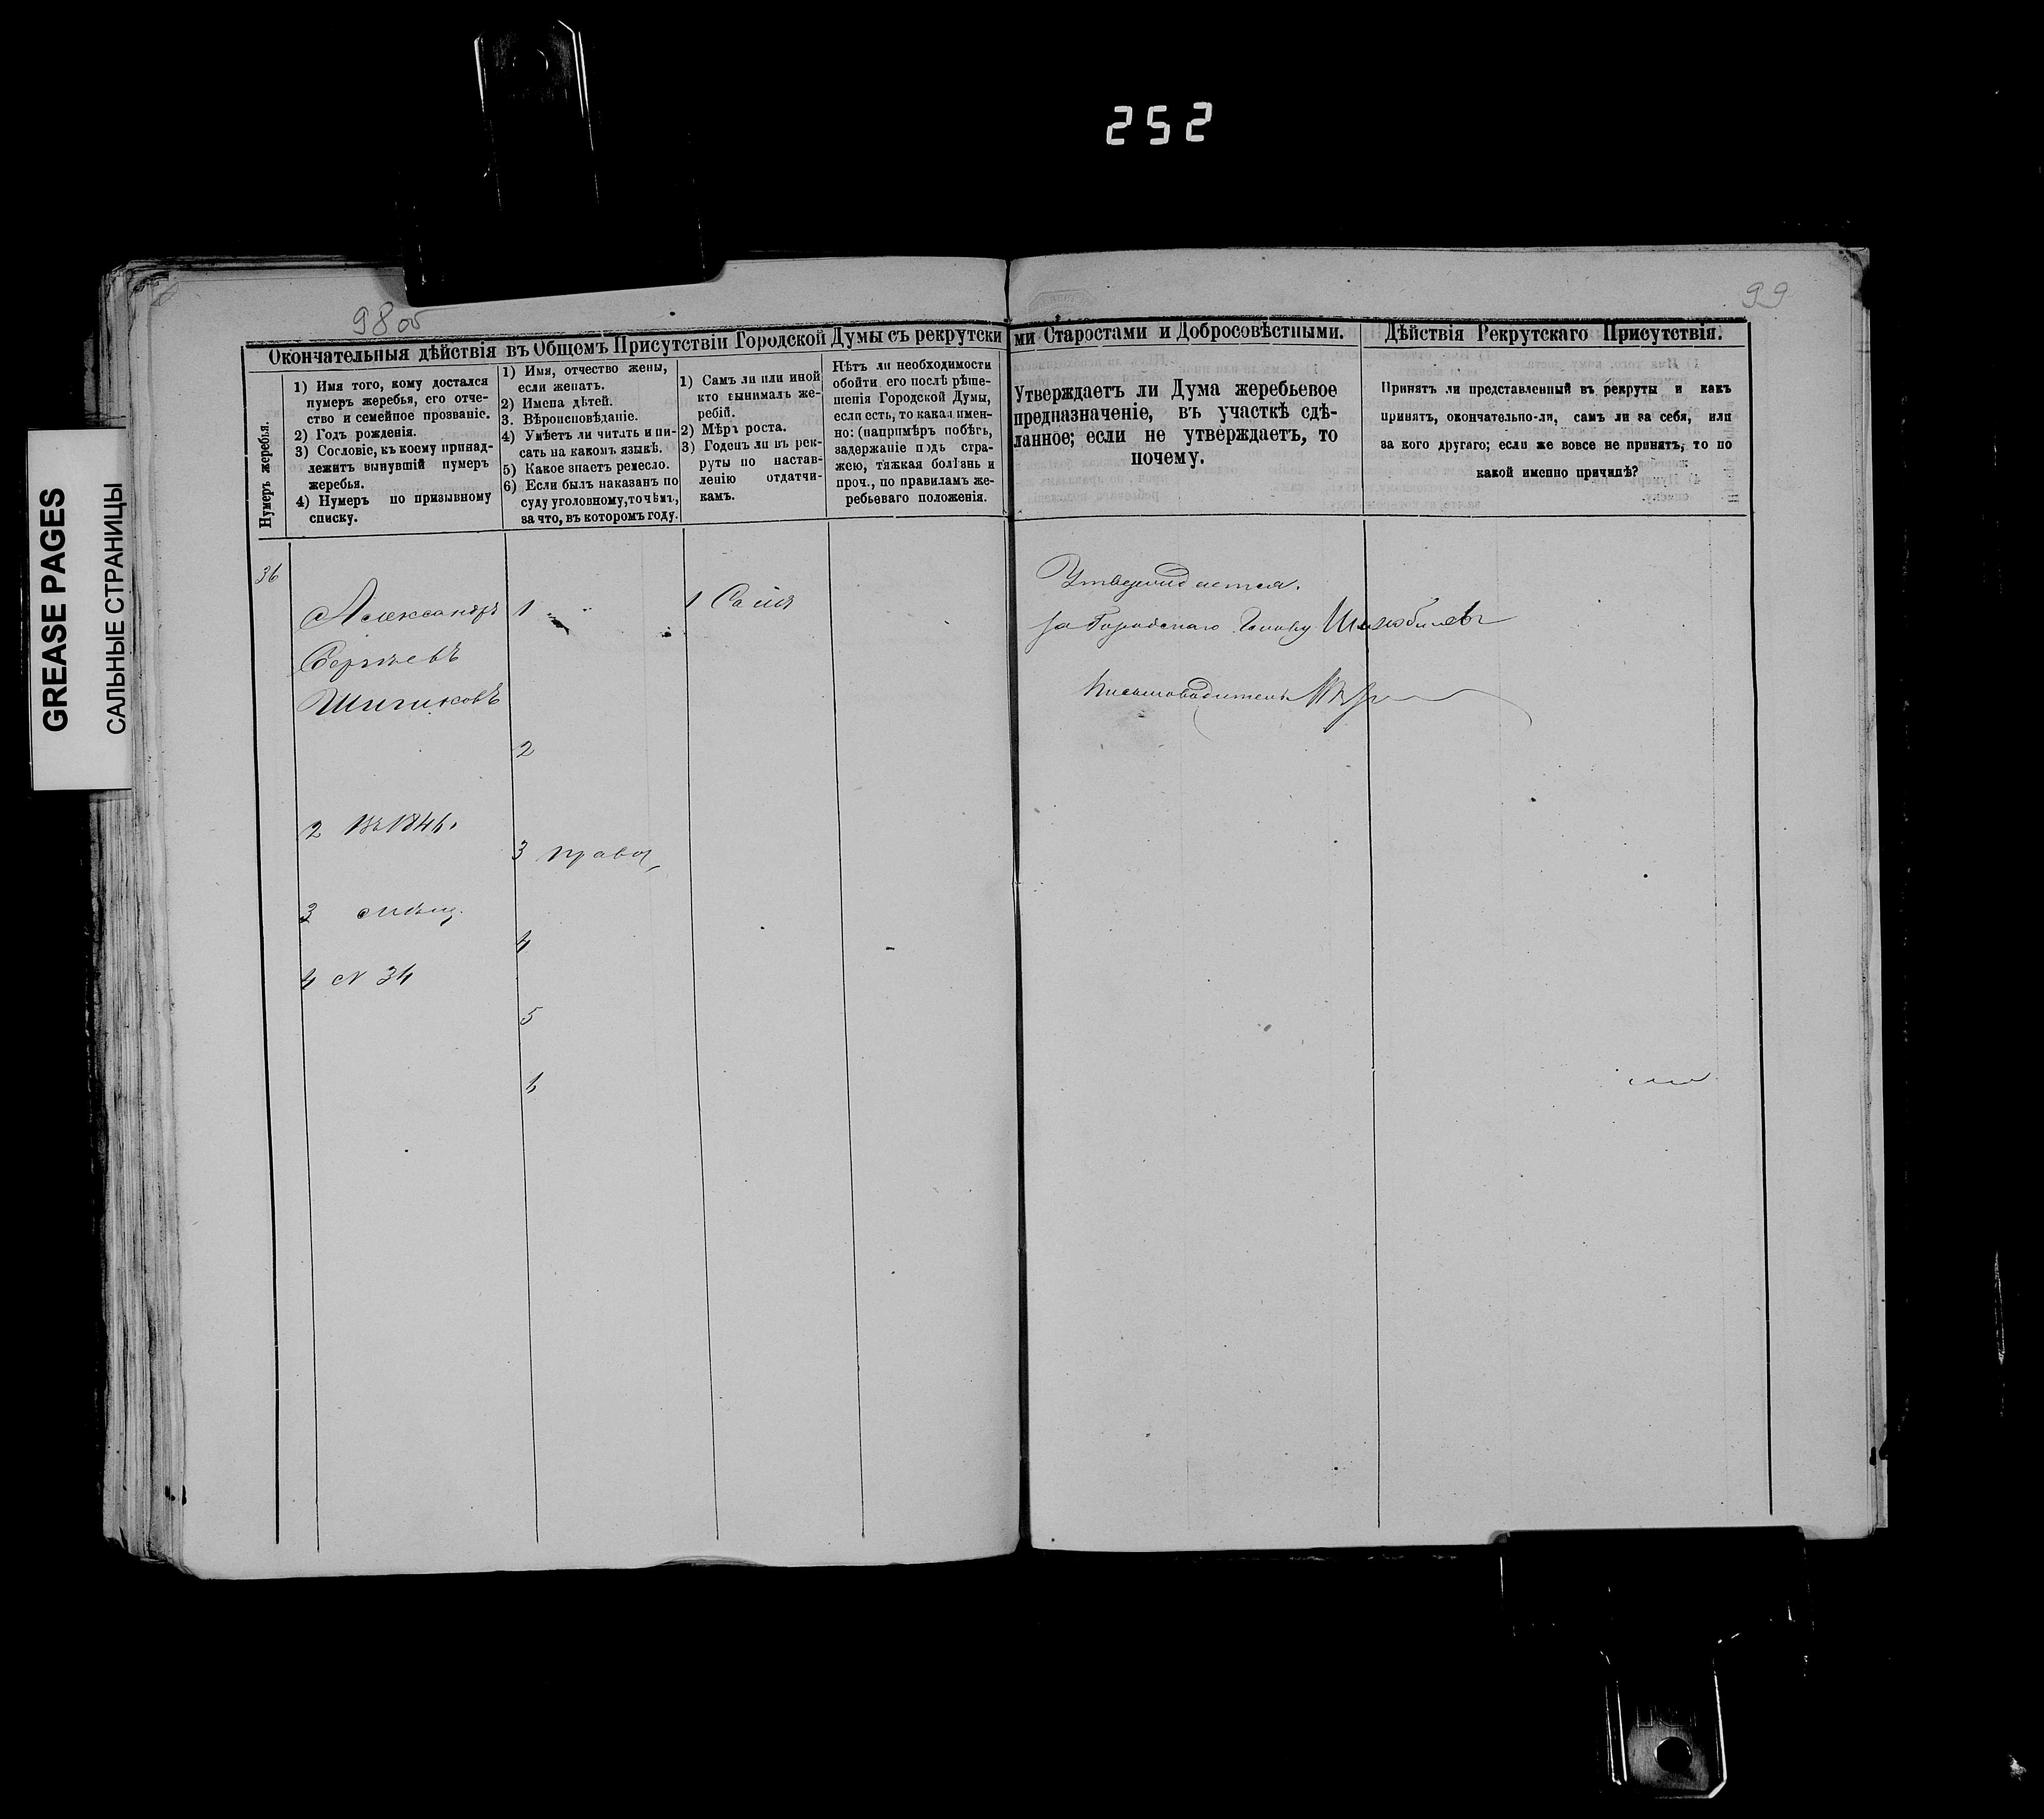 252
GREASE PAGES
САЛЬНЫЕ СТРАНИЦЫ
98 об
99
Окончательныя дѣйствія въ Общемъ Присутствіи Городской Думы съ рекрутски
ми Старостами и Добросовѣстными.
Дѣйствія Рекрутскаго Присутствія.
Нумеръ жеребья.
1) Имя того, кому достался
нумеръ жеребья, его отче-
ство и семейное прозваніе.
2) Годъ рожденія.
3) Сословіе, къ коему принад-
лежитъ вынувшій нумеръ
жеребья.
4) Нумеръ по призывному
списку.
1) Имя, отчество жены,
если женатъ.
2) Имена дѣтей.
3. Вѣроисповѣданіе.
4) Умѣетъ ли читать и пи-
сать на какомъ языкѣ.
5) Какое знаетъ ремесло.
6) Если былъ наказанъ по
суду уголовному, то чѣмъ,
за что, въ которомъ году.
1) Самъ ли или иной
кто вынималъ же-
ребій.
2) Мѣръ роста.
3) Годенъ ли въ рек-
руты по настав-
ленію отдатчи-
камъ.
Нѣтъ ли необходимости
обойти его послѣ рѣше-
нія Городской Думы,
если есть, то какая имен-
но: (напримѣръ побѣгъ,
задержаніе подъ стра-
жею, тяжкая болѣзнь и
проч., по правиламъ же-
ребьеваго положенія.
Утверждаетъ ли Дума жеребьевое
предназначеніе, въ участкѣ сдѣ-
ланное; если не утверждаетъ, то
почему.
Принятъ ли представленный въ рекруты и какъ
принятъ, окончательно-ли, самъ ли за себя, или
за кого другаго; если же вовсе не принятъ, то по
какой именно причинѣ?
36
Александръ
Сергѣевъ
Шигиковъ
2 Въ 1846.
3 мѣщ.
4 N 34
1
2
3 правос
4
5
6
1 Самъ
Утверждается.
за Городскаго Голову
Письмоводитель